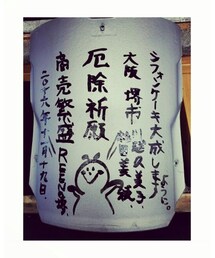 シフォンケーキ大成します
ように。
大阪 堺市 川越久美子
厄除祈願
商売繁盛
二〇十六年十一月十九日.